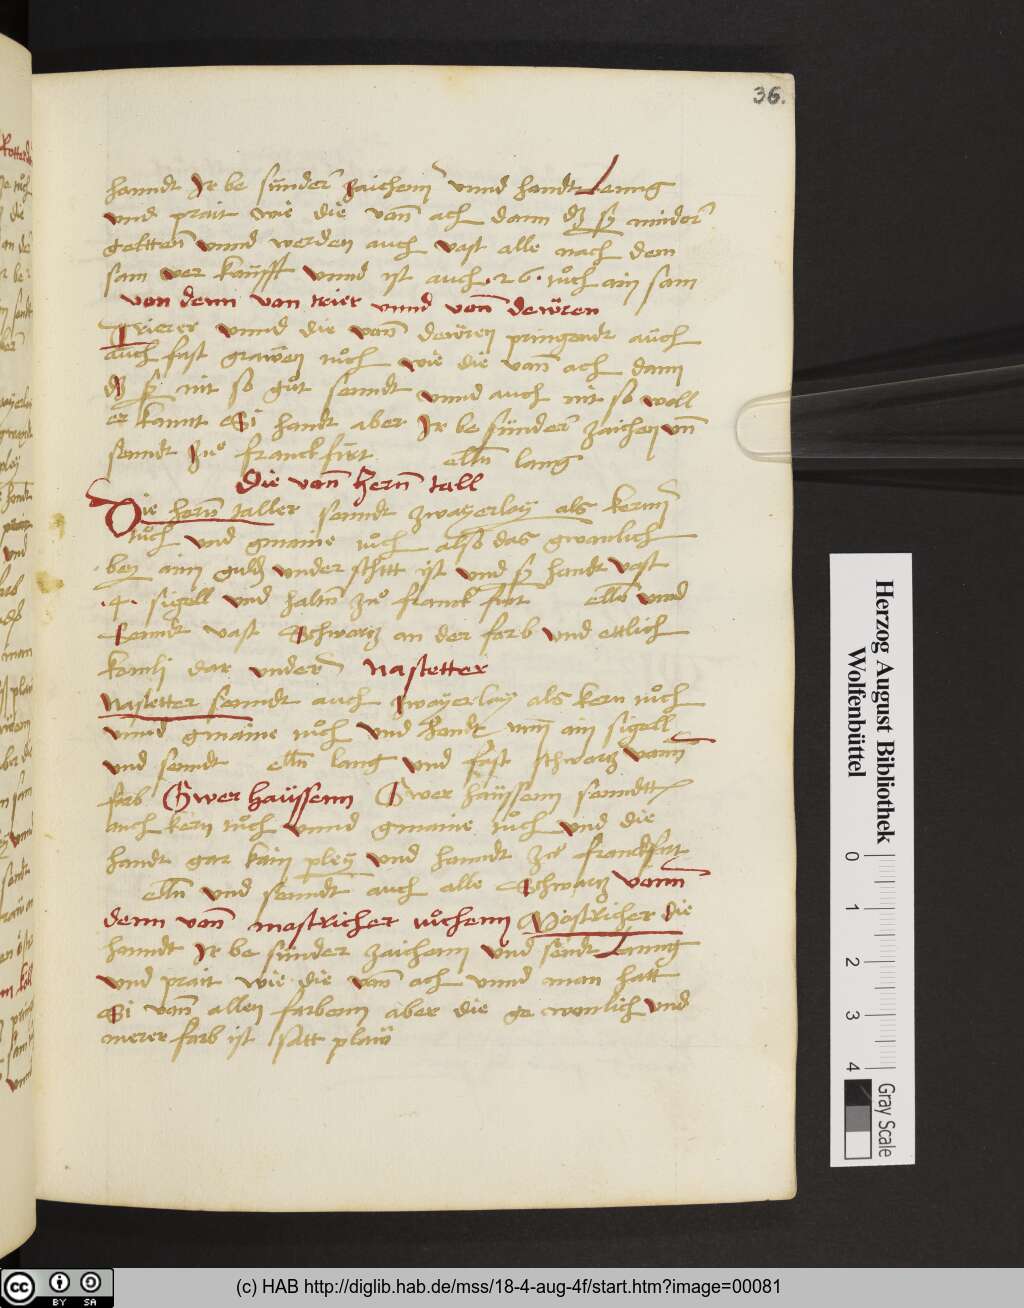 36.
hanndt Ir be sünder zaichenn vnnd handt Lenng
vnd prait wie die vonn ach dann dz sy minder
geltten vnnd werden auch vast alle nach dem
sam ver kaüfft vnnd ist auch .26. tuͦch ain sam
von denn von trier vnnd vonn dewren
Trierer vnnd die vonn dewren pringendt aüch
auch fast grawen tuͦch wie die vonn ach dann
dz sy nit so guͦt senndt vnnd auch nit so woll
er kannt Si handt aber Ir be sünder zaichen vnd
senndt zuͦ franckfürt elln lang
Die vonn hernn tall
Die hernn taller senndt zwayerley als kernn
tuͦch vnd gmaine tuͦch also das gwanlich
bey ainn guldn vnder schitt ist vnd sy handt vast
.4. sigell vnd haltn zuͦ franckfurt elln vnd
senndt vast Schwarz an der farb vnd ettlich
kemli dar vnder nastetter
Nastetter senndt auch zwayerlay als kern tuͦch
vnnd gmaine tuͦch vnd handt nun ain sigell
vnd senndt elln lang vnd fast schwarz vonn
farb Gwer haüssenn Gwer haüssenn senndtt
auch kern tuͦch vnnd gmaine tuͦch vnd die
handt gar kain pley vnd hanndt zuͦ franckfurt
elln vnd senndt auch alle Schwarz vonn
denn vonn mastricher tuͦchenn Mostricher die
hanndt Ir be sünder zaichenn vnd sendt Lanng
vnd prait wie die vonn ach vnnd man hatt
Si vonn allen farbenn aber die ge wonlich vnd
merer farb ist satt plaw
Herzog August Bibliothek
Wolfenbüttel
0 1 2 3 4
Gray Scale
(c) HAB http://diglib.hab.de/mss/18-4-aug-4f/start.htm?image=00081
cc BY SA